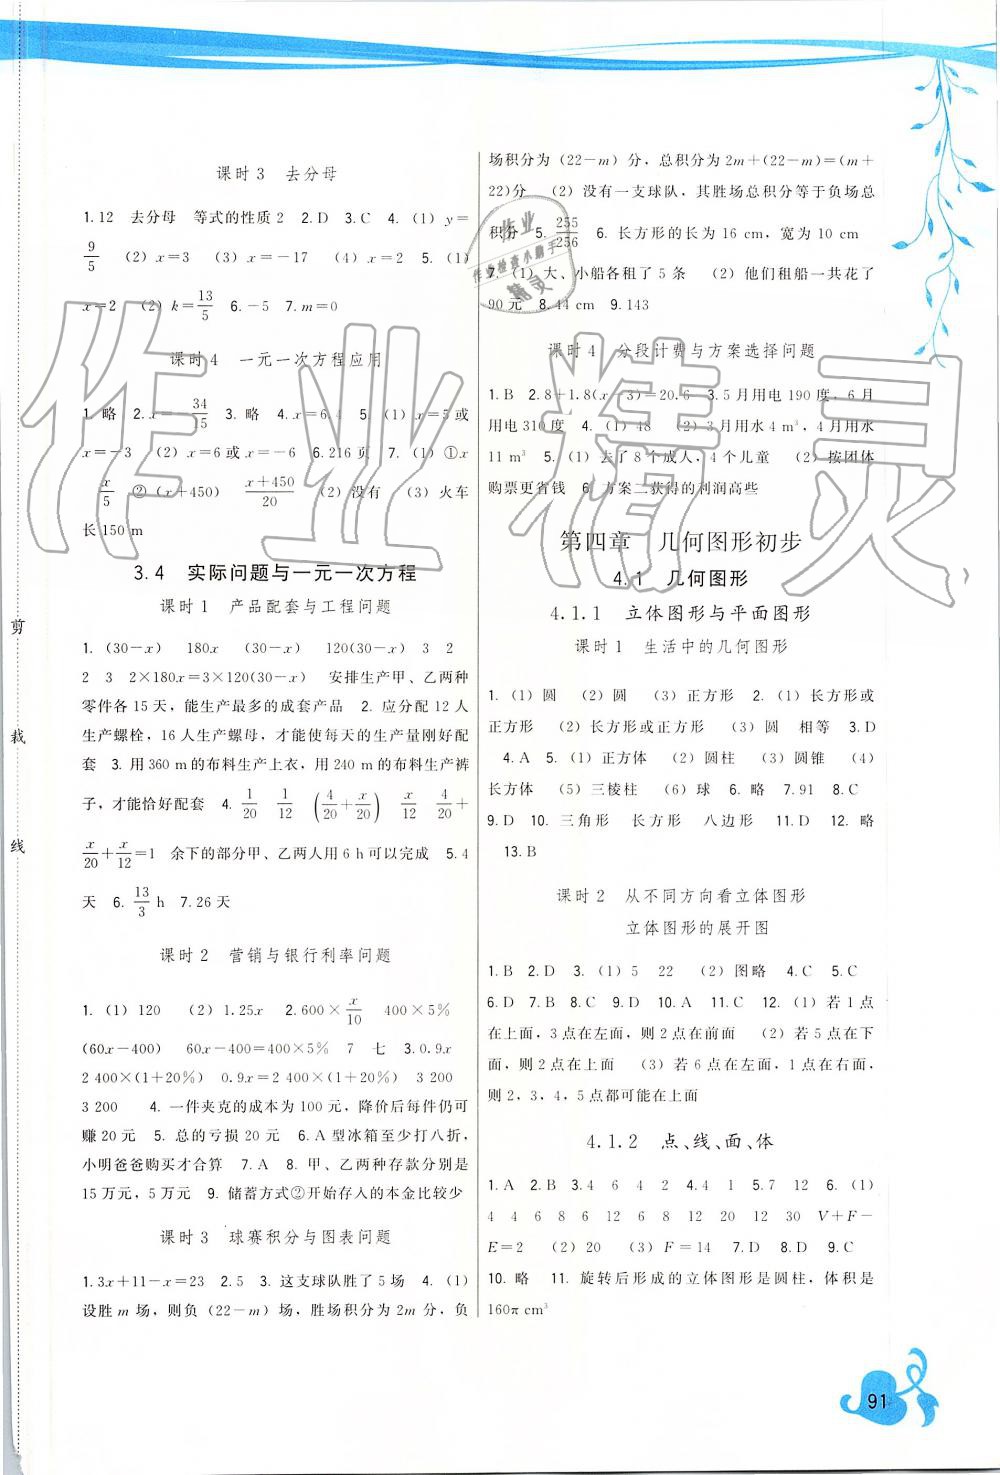 课时3 去分母
1. 12 去分母 等式的性质2 2. D 3. C 4. (1) y=
9/5 (2) x=3 (3) x=-17 (4) x=2 5. (1)
x=2 (2) k=13/5 6. -5 7. m=0
课时4 一元一次方程应用
1. 略 2. x=34/15 3. 略 4. x=6.4 5. (1) x=5或
x=-3 (2) x=6或x=-6 6. 216页 7. (1) ①x
x/5 ②(x+450) (x+450)/20 (2) 没有 (3) 火车
长150 m
3.4 实际问题与一元一次方程
课时1 产品配套与工程问题
1. (30-x) 180x (30-x) 120(30-x) 3 2
2 3 2×180x=3×120(30-x) 安排生产甲、乙两种
零件各15天,能生产最多的成套产品 2. 应分配12人
生产螺栓,16人生产螺母,才能使每天的生产量刚好配
套 3. 用360 m的布料生产上衣,用240 m的布料生产裤
子,才能恰好配套 4. 1/20 1/12 (4/20+x/20) x/12 4/20+
x/20+x/12=1 余下的部分甲、乙两人用6 h可以完成 5. 4
天 6. 13/3 h 7. 26天
课时2 营销与银行利率问题
1. (1) 120 (2) 1.25x 2. 600×x/10 400×5%
(60x-400) 60x-400=400×5% 7 七 3. 0.9x
2 400×(1+20%) 0.9x=2 400×(1+20%) 3 200
3 200 4. 一件夹克的成本为100元,降价后每件仍可
赚20元 5. 总的亏损20元 6. A型冰箱至少打八折,
小明爸爸购买才合算 7. A 8. 甲、乙两种存款分别是
15万元,5万元 9. 储蓄方式②开始存入的本金比较少
课时3 球赛积分与图表问题
1. 3x+11-x=23 2. 5 3. 这支球队胜了5场 4. (1)
设胜m场,则负(22-m)场,胜场积分为2m分,负
场积分为(22-m)分,总积分为2m+(22-m)=(m+
22)分 (2) 没有一支球队,其胜场总积分等于负场总
积分 5. 255/256 6. 长方形的长为16 cm,宽为10 cm
7. (1) 大、小船各租了5条 (2) 他们租船一共花了
90元 8. 44 cm 9. 143
课时4 分段计费与方案选择问题
1. B 2. 8+1.8(x-3)=20.6 3. 5月用电190度,6月
用电310度 4. (1) 48 (2) 3月用水4 m³,4月用水
11 m³ 5. (1) 去了8个成人,4个儿童 (2) 按团体
购票更省钱 6. 方案二获得的利润高些
第四章 几何图形初步
4.1 几何图形
4.1.1 立体图形与平面图形
课时1 生活中的几何图形
1. (1) 圆 (2) 圆 (3) 正方形 2. (1) 长方形或
正方形 (2) 长方形或正方形 (3) 圆 相等 3. D
4. A 5. (1) 正方体 (2) 圆柱 (3) 圆锥 (4)
长方体 (5) 三棱柱 (6) 球 6. 略 7. 91 8. C
9. D 10. 三角形 长方形 八边形 11. D 12. 略
13. B
课时2 从不同方向看立体图形
立体图形的展开图
1. B 2. D 3. (1) 5 22 (2) 图略 4. C 5. C
6. D 7. B 8. C 9. D 10. A 11. C 12. (1) 若1点
在上面,3点在左面,则2点在前面 (2) 若5点在下
面,则2点在上面 (3) 若6点在左面,1点在右面,
则2,3,4,5点都可能在上面
4.1.2 点、线、面、体
1. A 2. B 3. 4 6 4 2 4. 1 5. 7 12 6. (1)
4 4 6 8 6 12 6 8 12 20 12 30 V+F-
E=2 (2) 20 (3) F=14 7. D 8. D 9. C
10. 略 11. 旋转后形成的立体图形是圆柱,体积是
160π cm³
剪
裁
线
作业
作业检查小助手
精灵
作业精灵
91